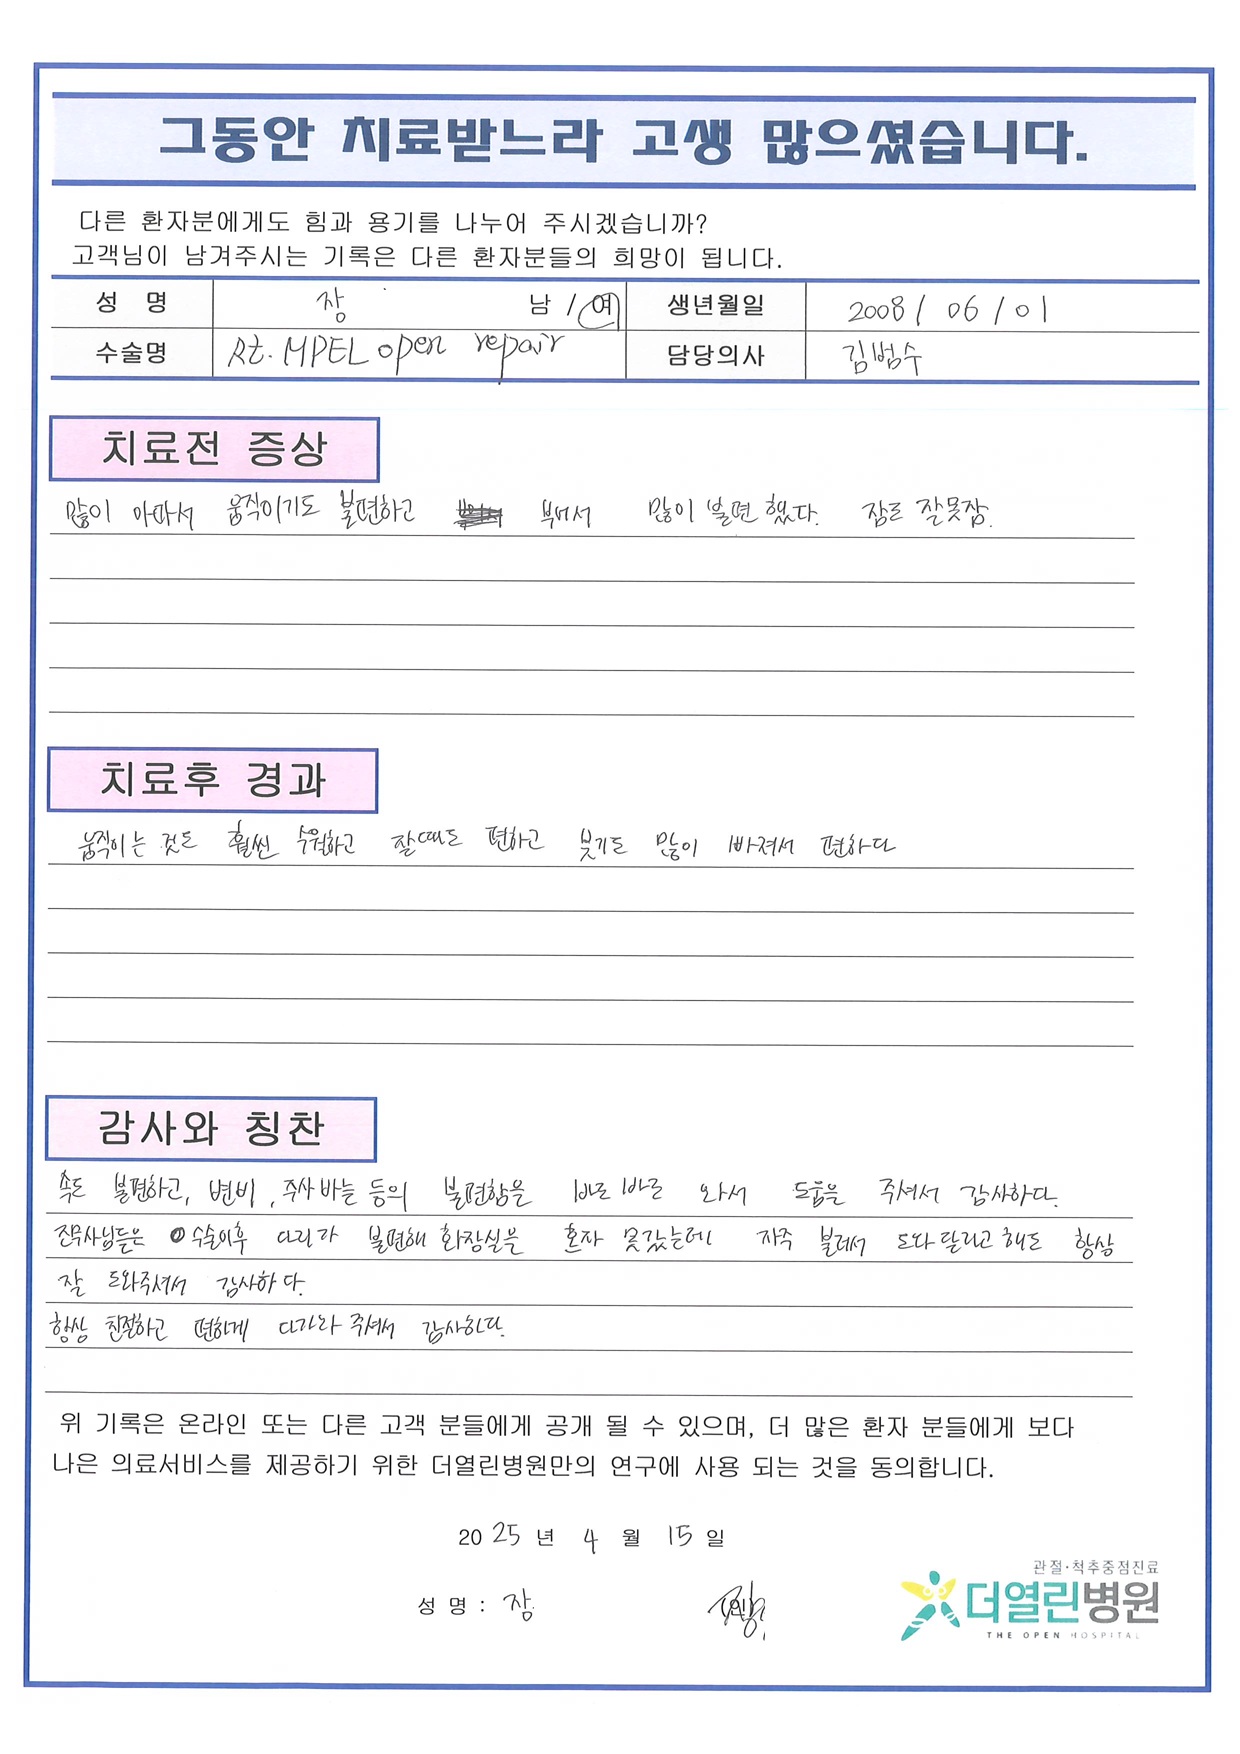 그동안 치료받느라 고생 많으셨습니다.
다른 환자분에게도 힘과 용기를 나누어 주시겠습니까?
고객님이 남겨주시는 기록은 다른 환자분들의 희망이 됩니다.
성 명 장 남 / 여 생년월일 2008 / 06 / 01
수술명 Rt. MPEL open repair 담당의사 김범수
치료전 증상
많이 아파서 움직이기도 불편하고 부어서 많이 불편했다. 잠도 잘못잠.
치료후 경과
움직이는 것도 훨씬 수월하고 잘때도 편하고 붓기도 많이 빠져서 편하다
감사와 칭찬
속도 불편하고, 변비, 주사바늘 등의 불편함을 바로바로 와서 도움을 주셔서 감사하다.
수술이후 다리가 불편해 화장실을 혼자 못갔는데 자주 불러서 도와달라고 해도 항상
잘 도와주셔서 감사하다.
항상 친절하고 편하게 다가와 주셔서 감사하다.
위 기록은 온라인 또는 다른 고객 분들에게 공개 될 수 있으며, 더 많은 환자 분들에게 보다
나은 의료서비스를 제공하기 위한 더열린병원만의 연구에 사용 되는 것을 동의합니다.
2025 년 4 월 15 일
성 명 : 장
관절·척추중점진료
더열린병원
THE OPEN HOSPITAL